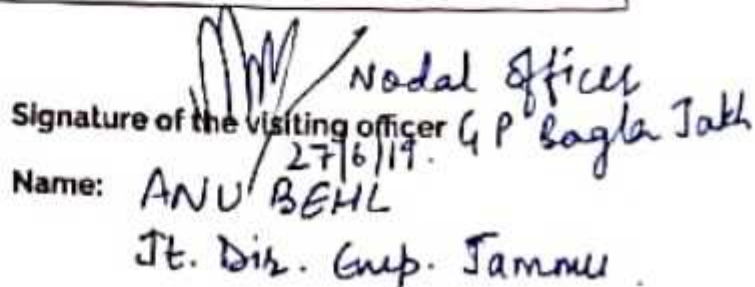 Nodal Officer
Signature of the visiting officer G P Bagla Jakh
27/6/19.
Name: ANU BEHL
Jt. Dir. Emp. Jammu.